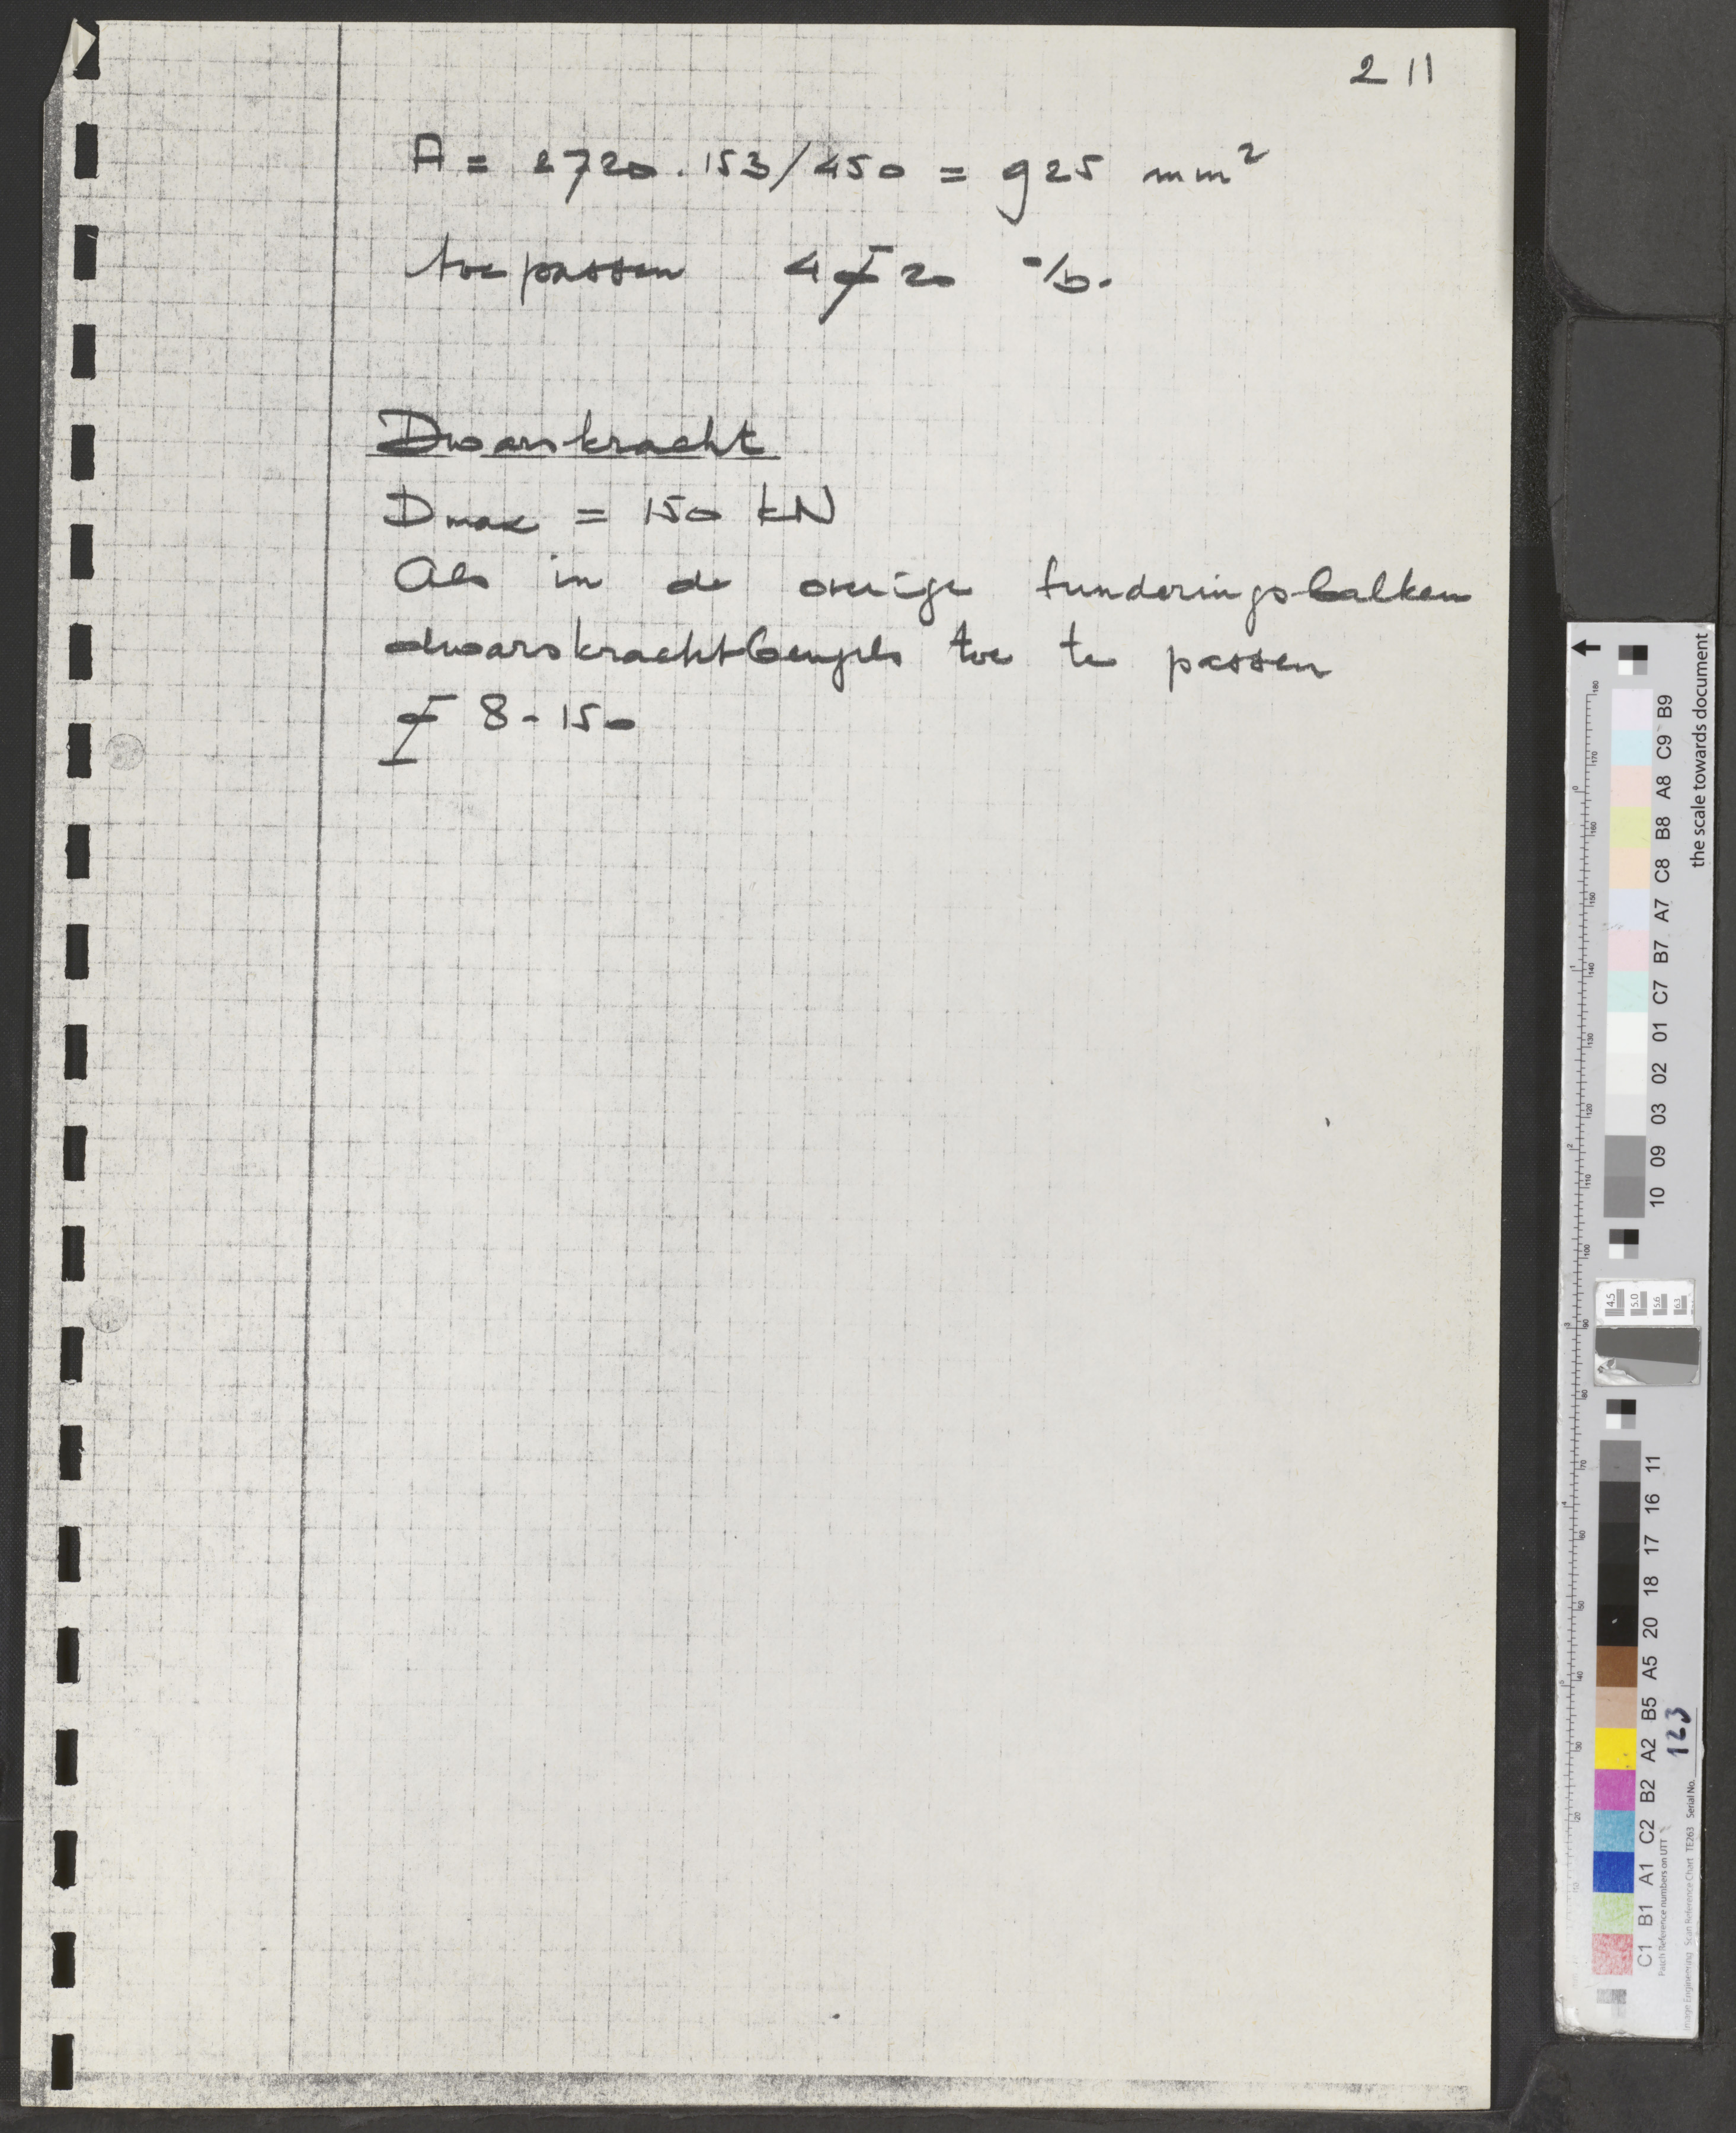 211
A = 2720 . 153/450 = 925 mm²
toepassen 4 ⌀ 20 o/b.
Dwarskracht
Dmax = 150 kN
Als in de overige funderingsbalken
dwarskrachtbeugels toe te passen
⌀ 8 - 150
the scale towards document
B9
C9
A8
B8
C8
A7
B7
C7
01
02
03
09
10
4.5
5.0
5.6
6.3
11
16
17
18
20
A5
B5
A2
B2
C2
A1
B1
C1
Patch Reference numbers on UTT
Image Engineering Scan Reference Chart TE263 Serial No. 123